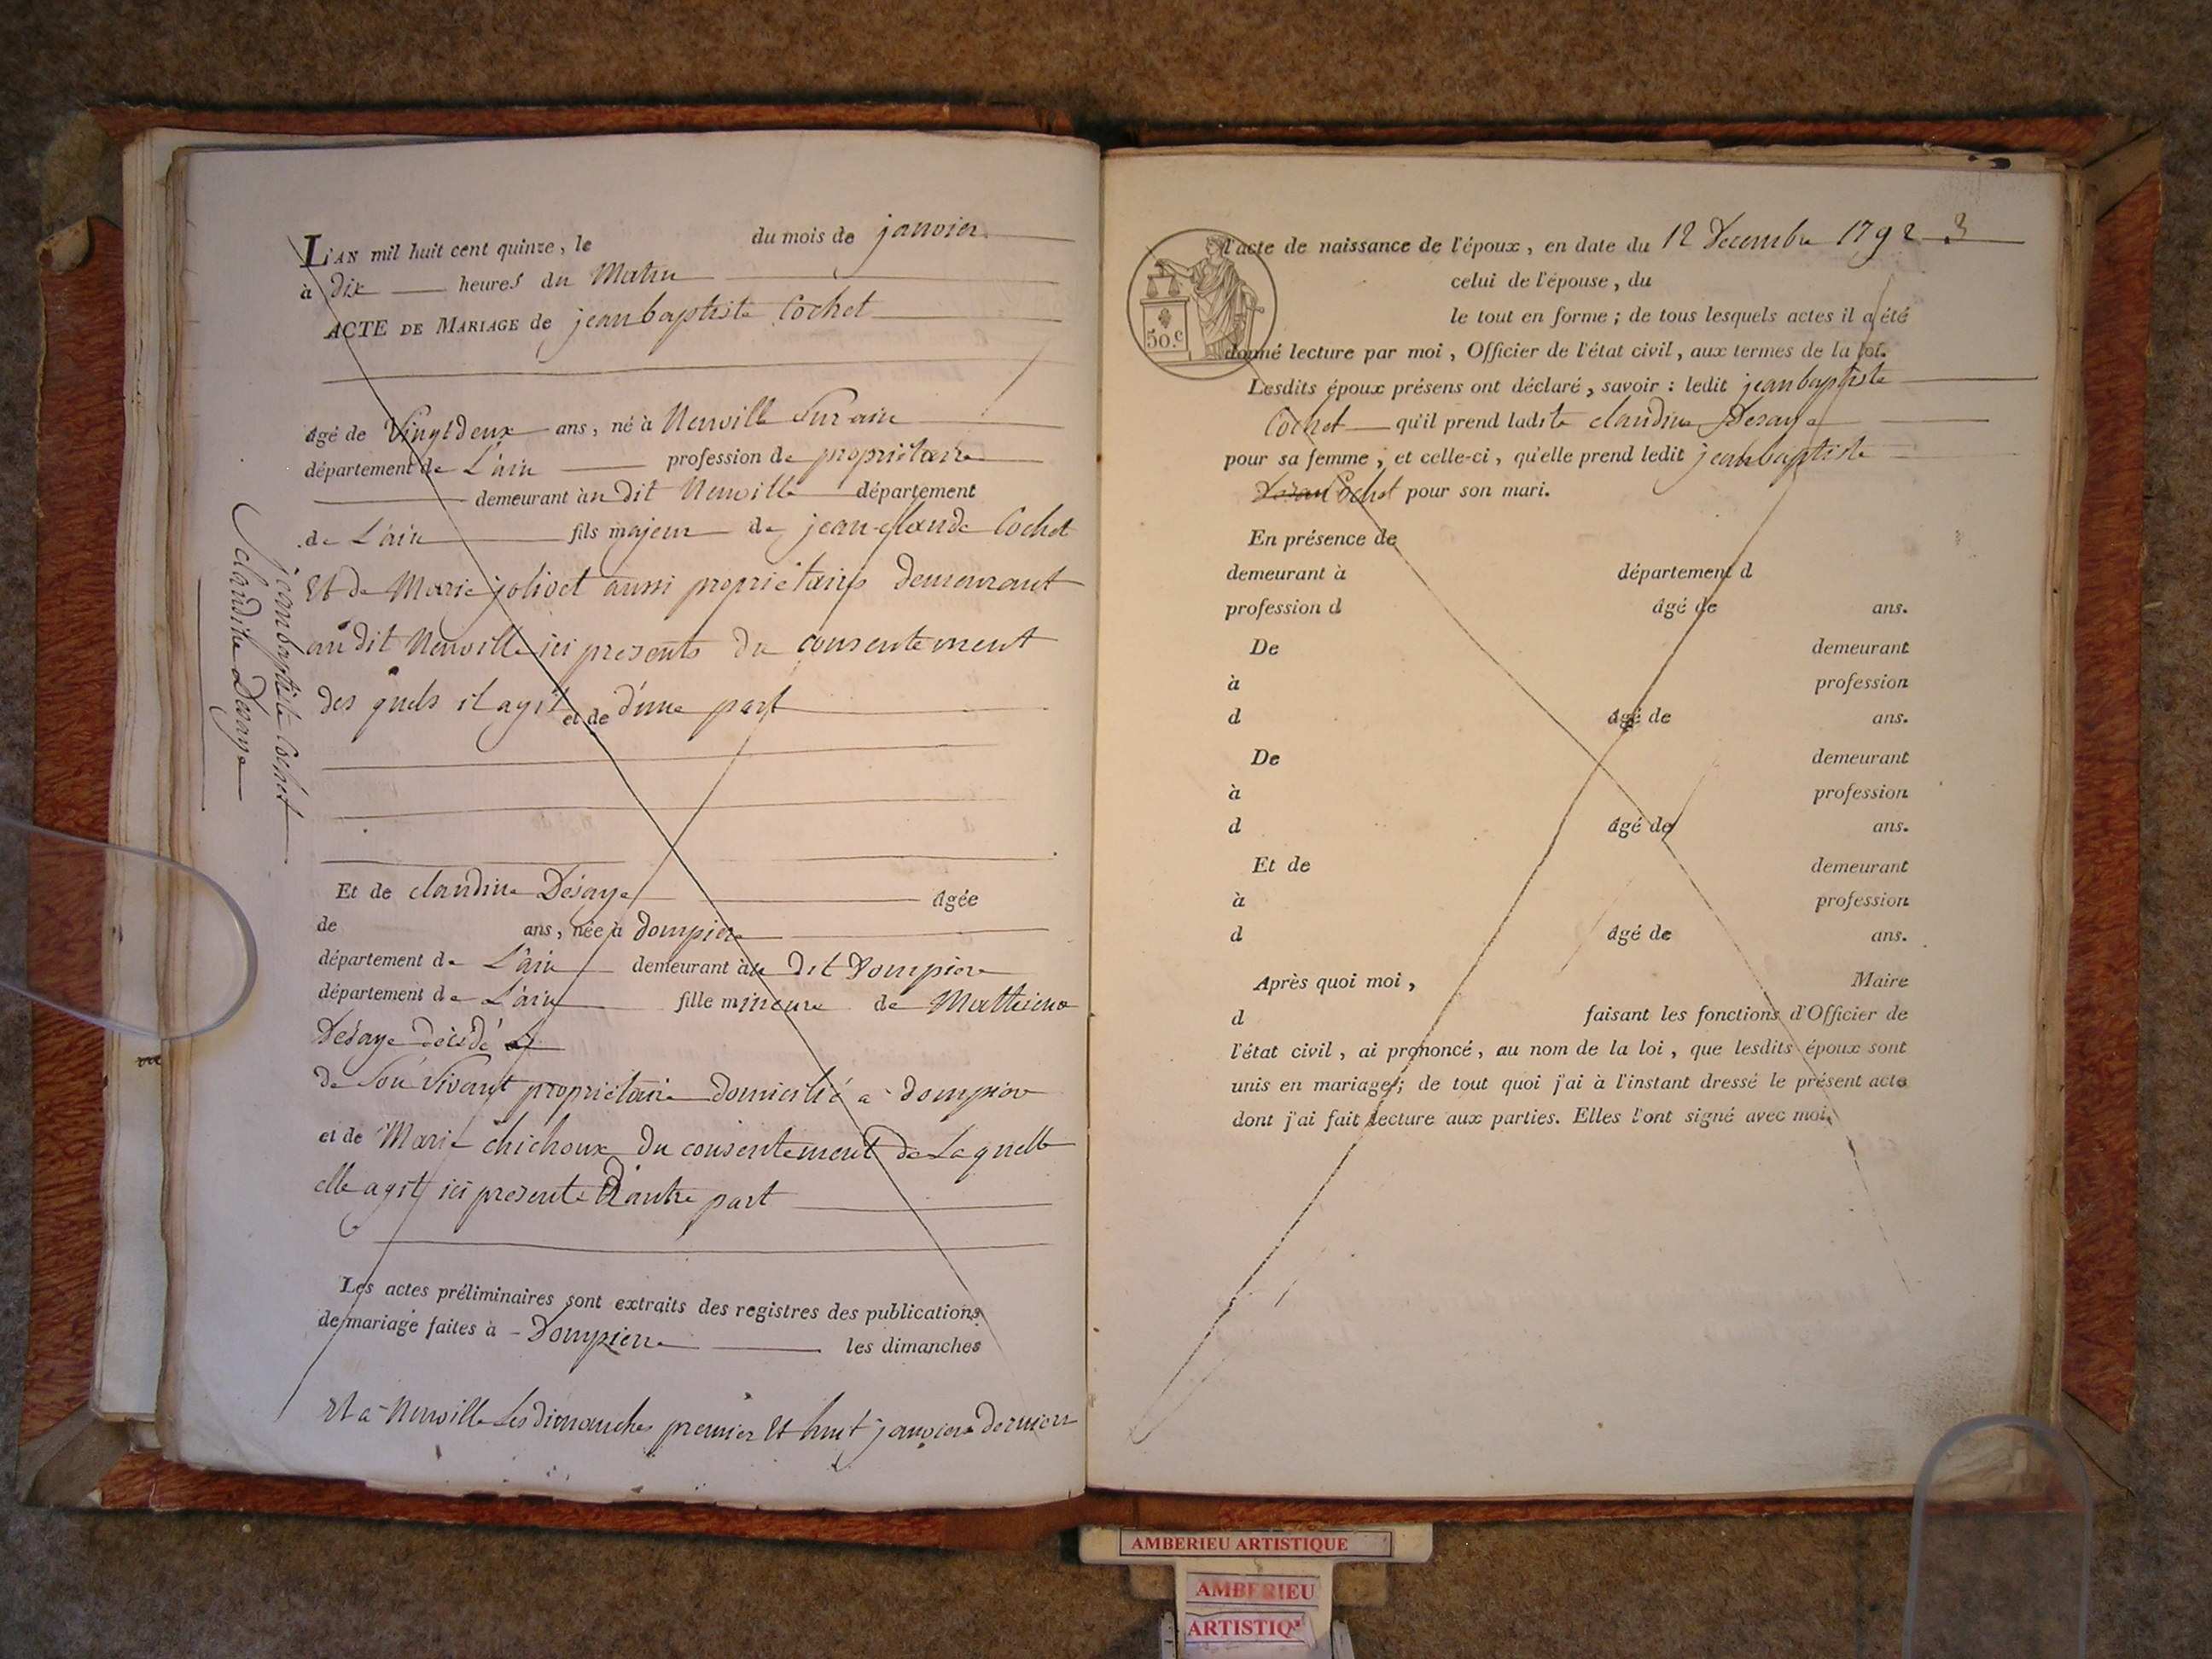 L'AN mil huit cent quinze, le du mois de janvier
à dix heures du Matin
ACTE DE MARIAGE de jeanbaptiste Cochet
âgé de Vingtdeux ans, né à Neuville Sur ain
département de L'ain profession de propriétaire
demeurant au dit Neuville département
de L'ain fils majeur de jean-claude Cochet
Et de Marie jolivet aussi propriétaires demeurant
au dit Neuville ici presents du consentement
des quels il agit et de d'une part
Et de claudine Désaye âgée
de ans, née à dompierre
département de L'ain demeurant au dit Dompierre
département de L'ain fille mineure de Mathieu
Desaye décédé
de Son Vivant propriétaire domicilié a dompierre
et de Marie chichoux du consentement de Laquelle
elle agit ici presente D'autre part
Les actes préliminaires sont extraits des registres des publications
de mariage faites à Dompierre les dimanches
Et a Neuville Les dimanches premier Et huit janvier dernier
jeanbaptiste Cochet
claudine Desaye
l'acte de naissance de l'époux, en date du 12 Decembre 1792 3
celui de l'épouse, du
le tout en forme ; de tous lesquels actes il a été
donné lecture par moi, Officier de l'état civil, aux termes de la loi.
50.c
Lesdits époux présens ont déclaré, savoir : ledit jeanbaptiste
Cochet qu'il prend ladite claudine Desaye
pour sa femme, et celle-ci, qu'elle prend ledit jeanbaptiste
Cochet pour son mari.
En présence de
demeurant à département d
profession d âgé de ans.
De demeurant
à profession
d âgé de ans.
De demeurant
à profession
d âgé de ans.
Et de demeurant
à profession
d âgé de ans.
Après quoi moi, Maire
d faisant les fonctions d'Officier de
l'état civil, ai prononcé, au nom de la loi, que lesdits époux sont
unis en mariage ; de tout quoi j'ai à l'instant dressé le présent acte
dont j'ai fait lecture aux parties. Elles l'ont signé avec moi.
AMBERIEU ARTISTIQUE
AMBERIEU
ARTISTIQ